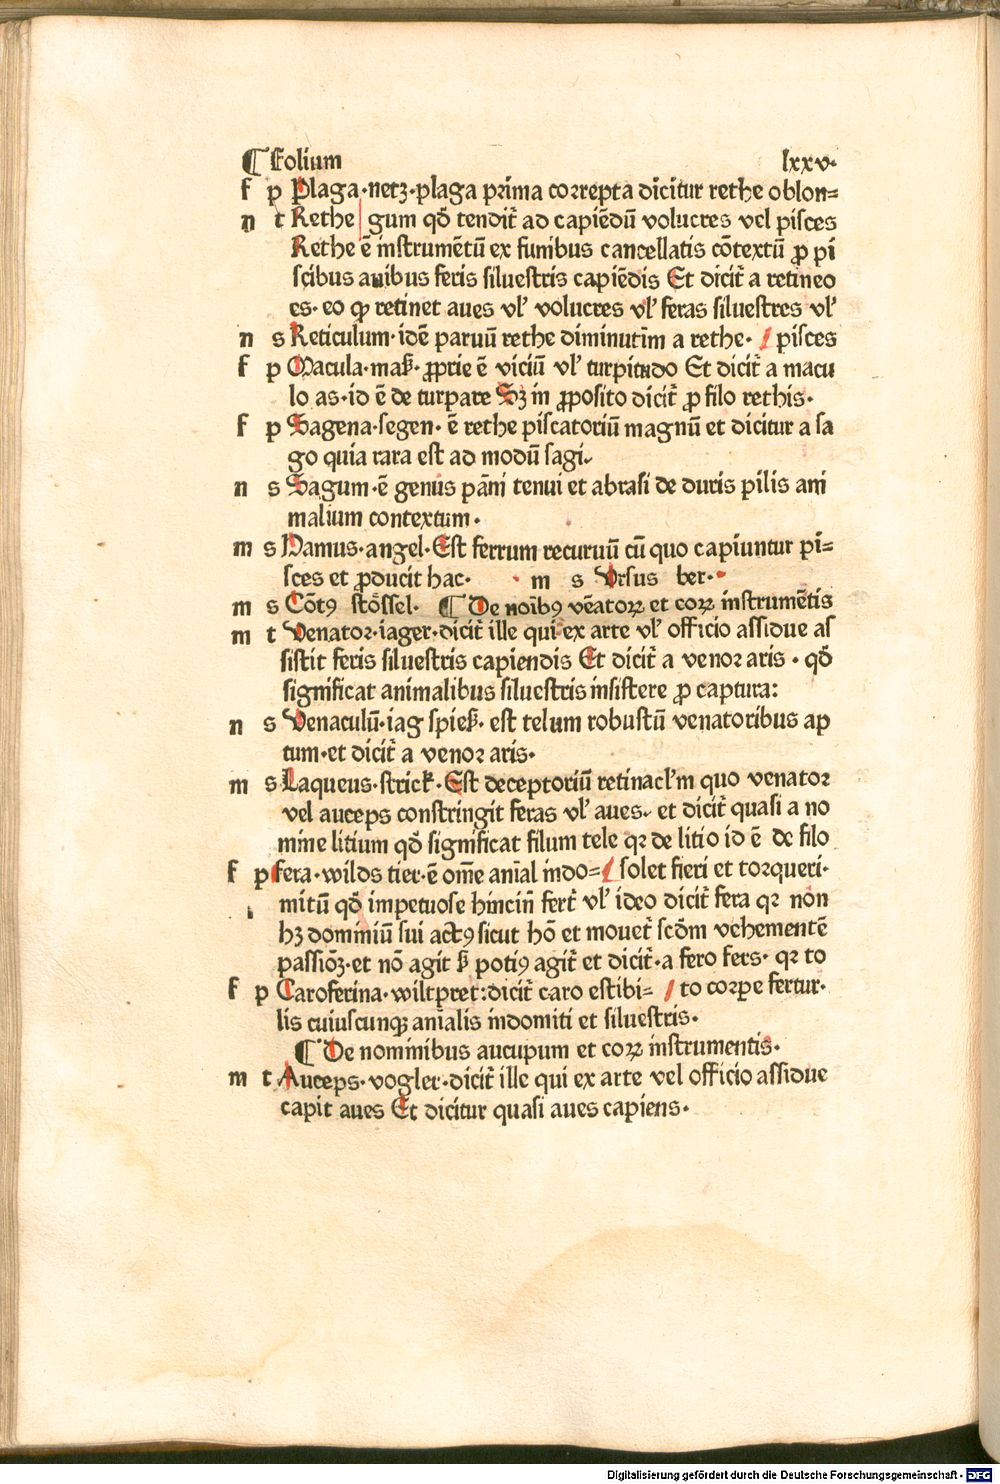 ¶ Folium lxxv·
f p Plaga·netz·plaga prima correpta dicitur rethe oblon=
n t Rethe | gum qđ tendit̃ ad capiēdū volucres vel pisces
Rethe ē instrumētū ex funibus cancellatis cōtextū ꝓ pi
scibus auibus feris siluestris capiēdis Et dicit̃ a retineo
es·eo ꝙ retinet aues vl' volucres vl' feras siluestres vl'
n s Reticulum·idē paruū rethe diminutīm a rethe· / pisces
f p Macula·mak̃·ꝓprie ē viciū vl' turpitudo Et dicit̃ a macu
lo as·id ē de turpare Sꝫ in ꝓposito dicit̃ ꝓ filo rethis·
f p Sagena·segen·ē rethe piscatoriū magnū et dicitur a sa
go quia rara est ad modū sagi·
n s Sagum·ē genus pāni tenui et abrasi de duris pilis ani
malium contextum·
m s Hamus·angel·Est ferrum recuruū cū quo capiuntur pi=
sces et ꝓducit hac· · m s Vrsus ber··
m s Cōtꝯ stössel· ¶ De noībꝯ vēatoꝝ et eoꝝ instrumētis
m t Venator·iager·dicit̃ ille qui ex arte vl' officio assidue as
sistit feris siluestris capiendis Et dicit̃ a venor aris·qđ
significat animalibus siluestris insistere ꝓ captura:
n s Venaculū·iag spieß·est telum robustū venatoribus ap
tum·et dicit̃ a venor aris·
m s Laqueus·strick·Est deceptoriū retinacl'm quo venator
vel auceps constringit feras vl' aues·et dicit̃ quasi a no
mine litium qđ significat filum tele qꝛ de litio id ē de filo
f p fera·wilds tier·ē om̄e anīal indo= / solet fieri et torqueri·
mitū qđ impetuose hincin̄ fert̃ vl' ideo dicit̃ fera qꝛ non
hꝫ dominiū sui actꝯ sicut hō et mouet̃ scd̄m vehementē
passiōꝫ·et nō agit ß potiꝯ agit̃ et dicit̃·a fero fers·qꝛ to
f p Caroferina·wiltpret:dicit̃ caro estibi= / to corpe fertur·
lis cuiuscunqꝫ anīalis indomiti et siluestris·
¶ De nominibus aucupum et eoꝝ instrumentis·
m t Auceps·vogler·dicit̃ ille qui ex arte vel officio assidue
capit aues Et dicitur quasi aues capiens·
Digitalisierung gefördert durch die Deutsche Forschungsgemeinschaft - DFG